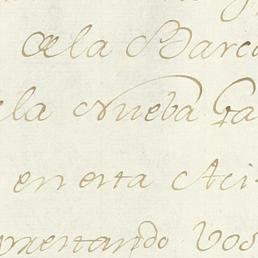 de la Barc
la Nueba Ga
en esta Aci
mentando Vos